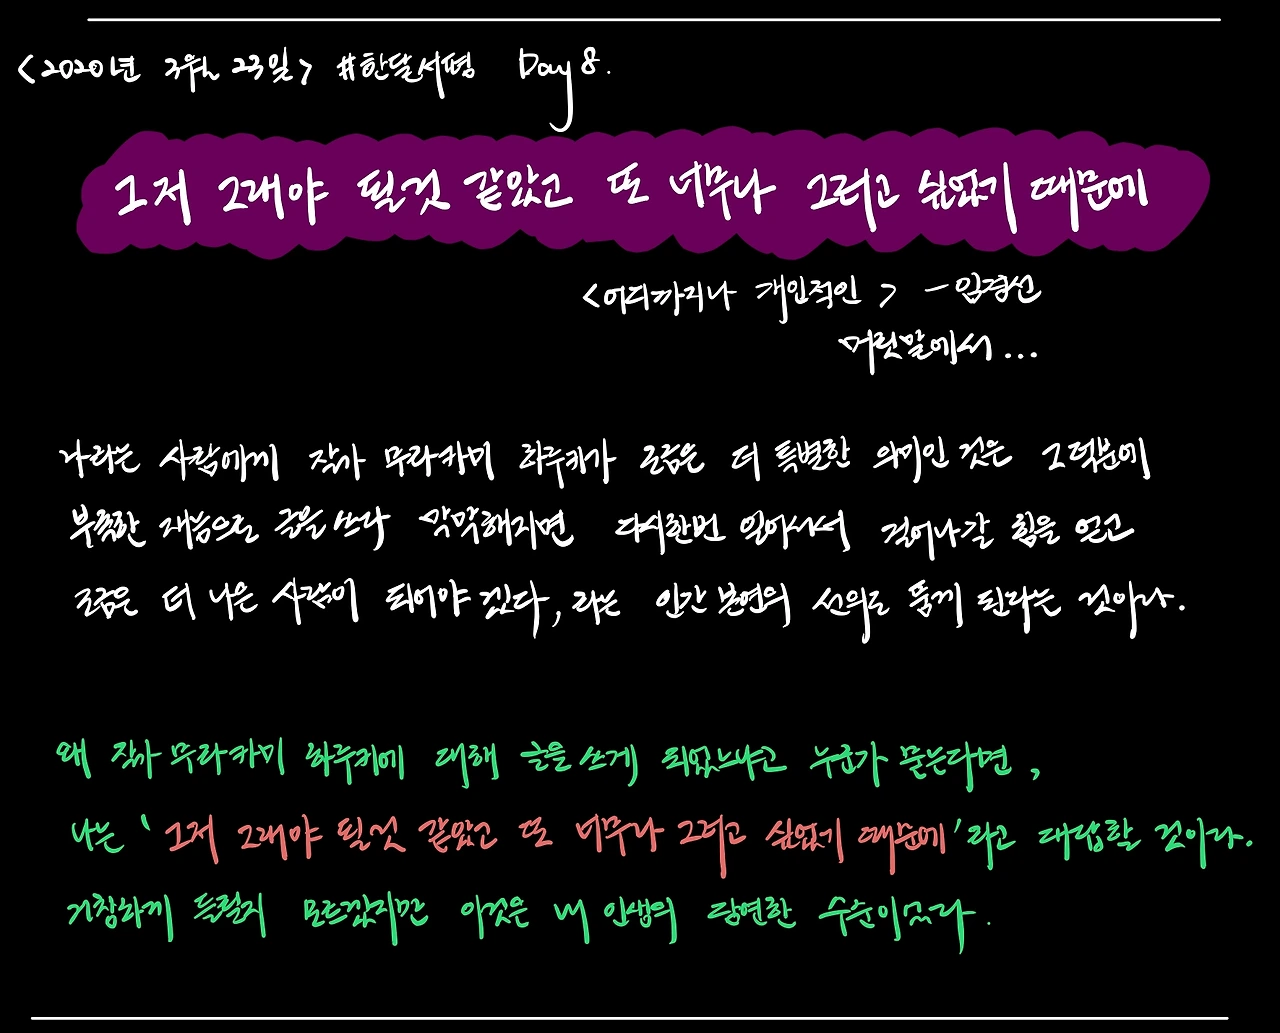 <2020년 3월 23일> #한달서평 Day 8.
그저 그래야 될것 같았고 또 너무나 그러고 싶었기 때문에
<어디까지나 개인적인> - 임경선
머릿말에서...
나라는 사람에게 작가 무라카미 하루키가 조금은 더 특별한 의미인 것은 그 덕분에
부족한 재능으로 글을 쓰다 막막해지면 다시한번 일어서서 걸어나갈 힘을 얻고
조금은 더 나은 사람이 되어야 겠다, 라는 인간 본연의 선의로 품게 된다는 것이다.
왜 작가 무라카미 하루키에 대해 글을 쓰게 되었느냐고 누군가 묻는다면,
나는 '그저 그래야 될것 같았고 또 너무나 그러고 싶었기 때문에' 라고 대답할 것이다.
거창하게 들릴지 모르겠지만 이것은 내 인생의 당연한 수순이었다.